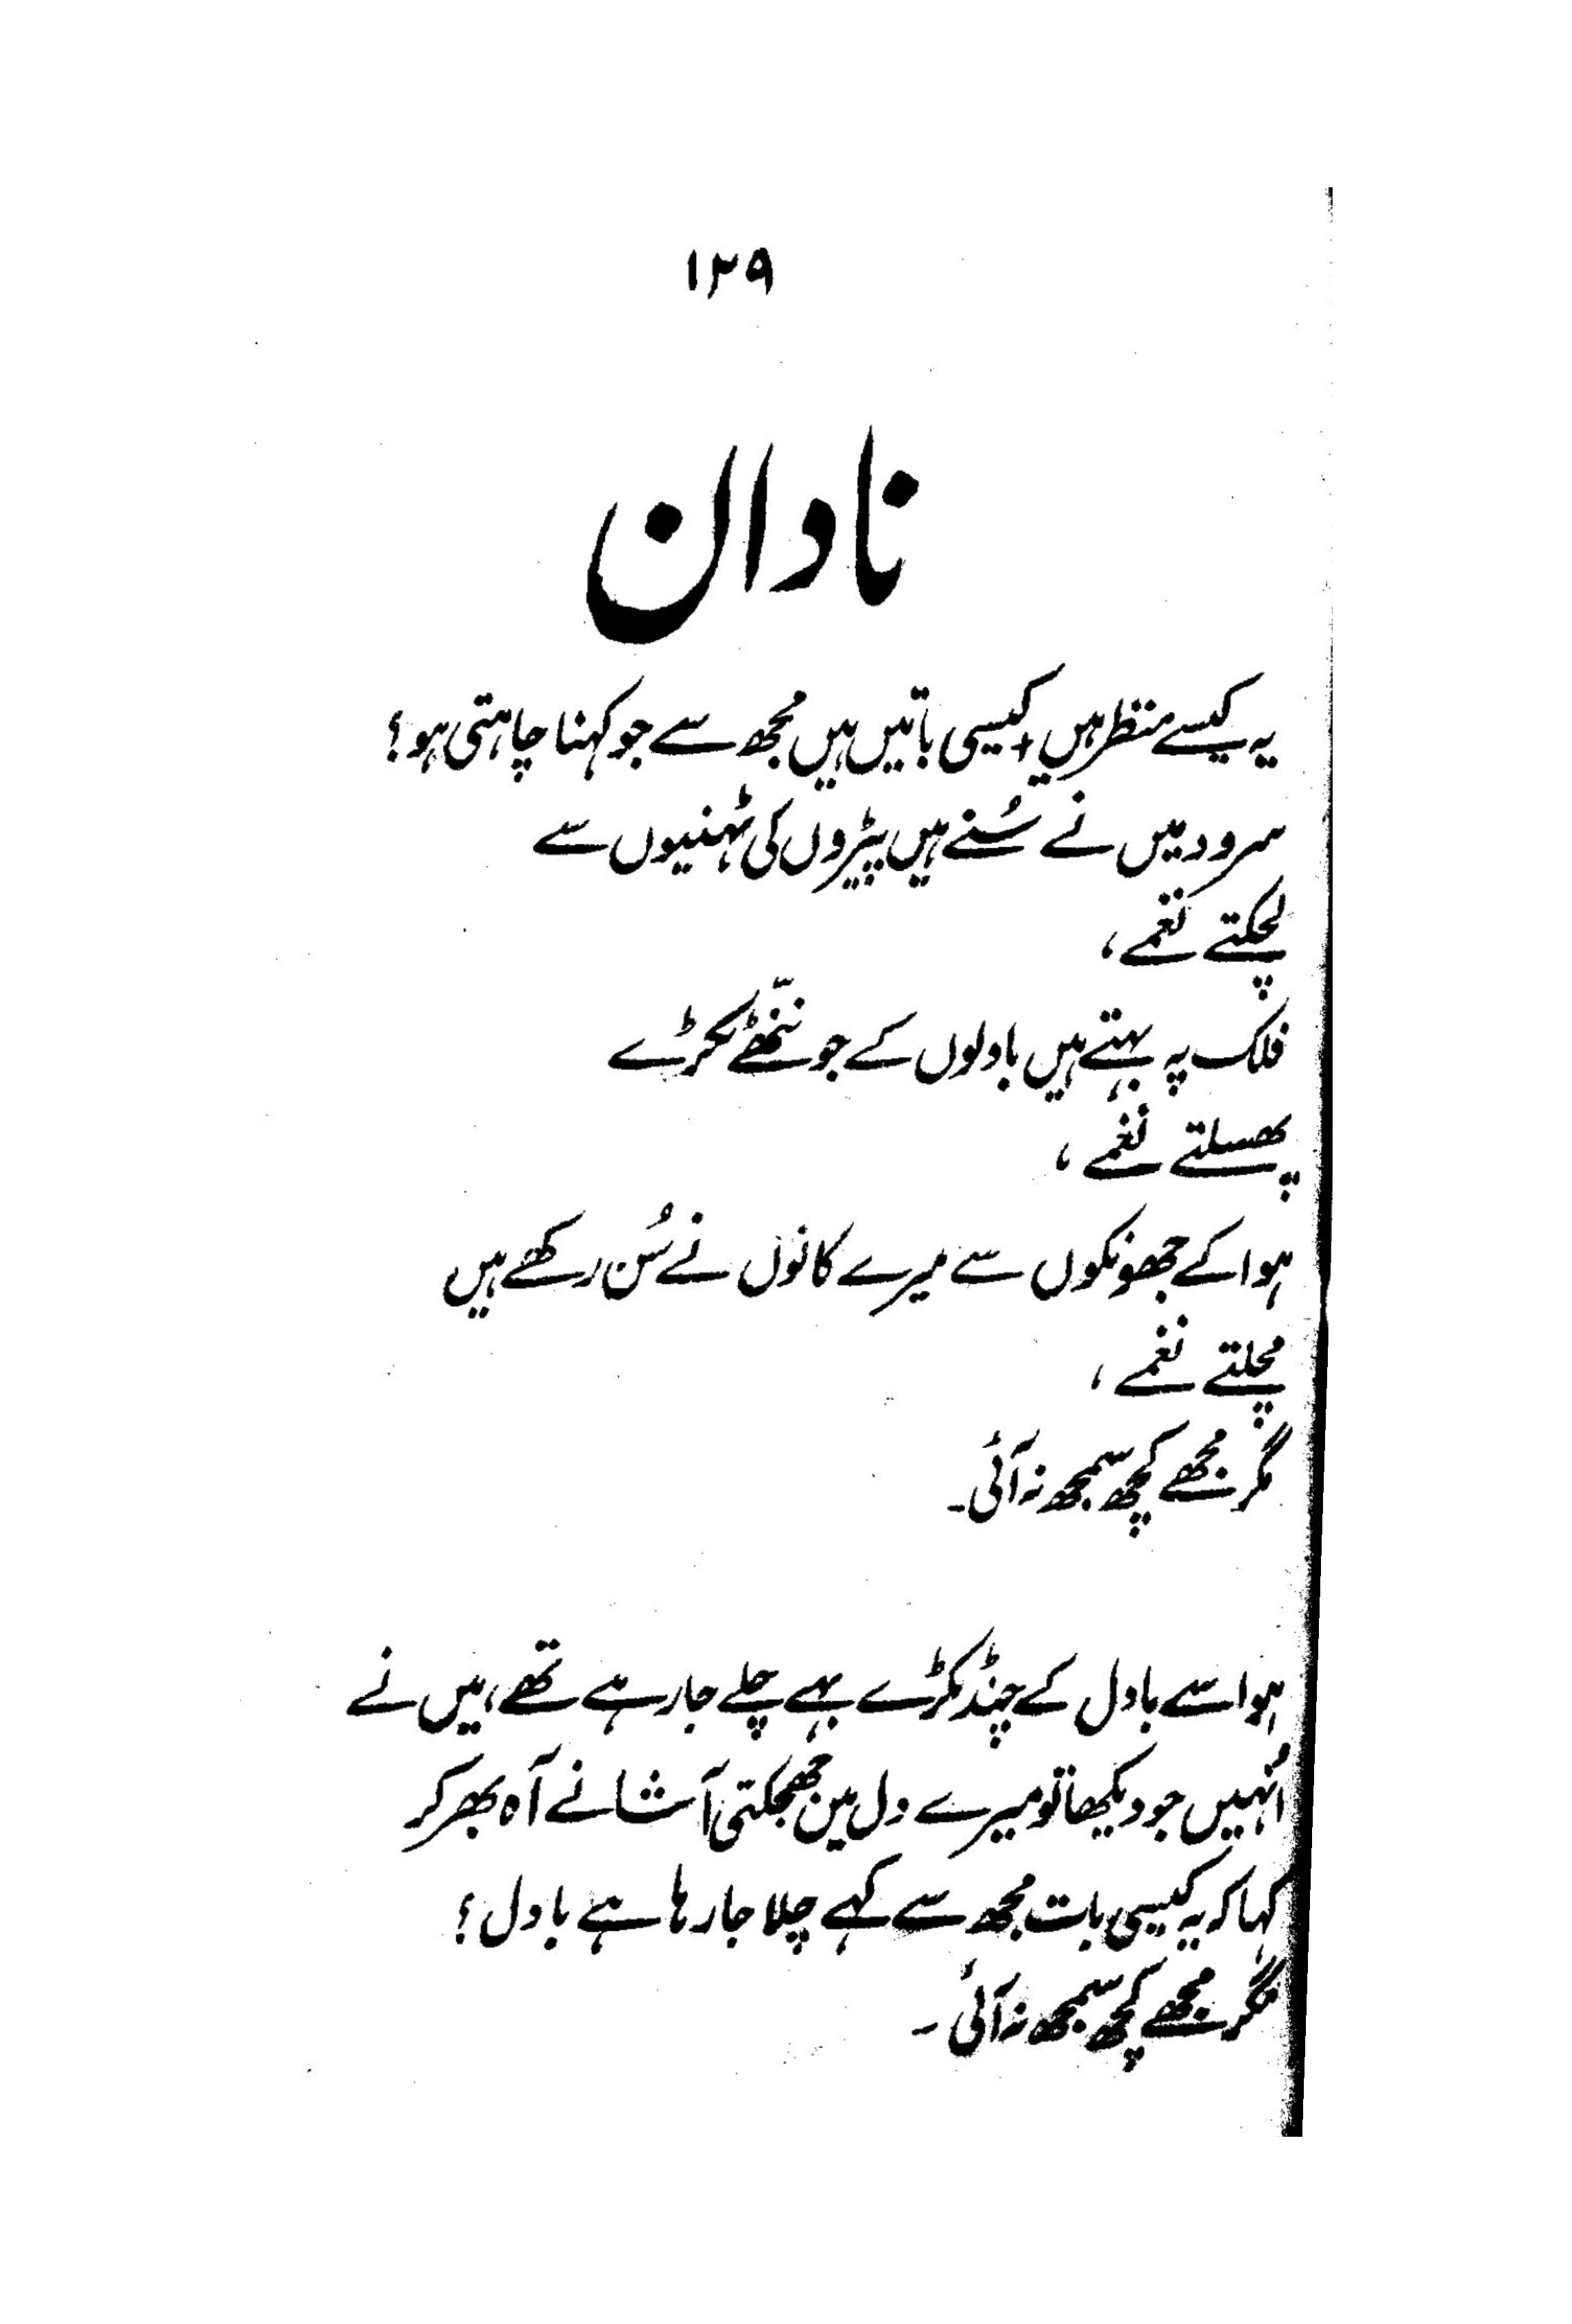 ۱۳۹
نادان
یہ کیسے منظر ہیں، کیسی باتیں ہیں مجھ سے جو کہنا چاہتی ہو؟
سرود میں نے سُنے ہیں پیڑوں کی ٹہنیوں سے
لچکتے نغمے،
فلک پہ بہتے ہیں بادلوں کے جو ننّھے ٹکڑے
پھسلتے نغمے،
ہوا کے جھونکوں سے میرے کانوں نے سُن رکھے ہیں
مچلتے نغمے،
مگر مجھے کچھ سمجھ نہ آئی۔
ہوا سے بادل کے چند ٹکڑے بہے چلے جا رہے تھے، میں نے
اُنہیں جو دیکھا تو میرے دل میں جھجکتی آشا نے آہ بھر کر
کہا کہ یہ کیسی بات مجھ سے کہے چلا جا رہا ہے بادل؟
مگر مجھے کچھ سمجھ نہ آئی۔